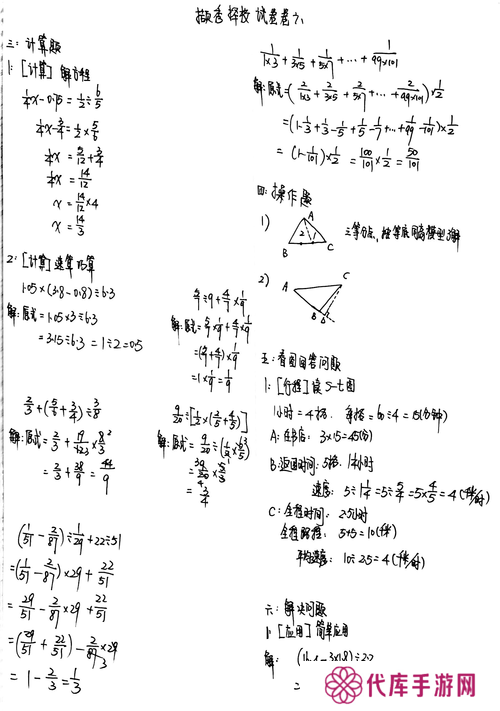 撷秀择校试卷卷六
三:计算题
1:[计算]解方程
¼x-0.75=½÷6/5
¼x-¾=½×5/6
¼x=5/12+¾
¼x=14/12
x=14/12×4
x=14/3
2:[计算]速算巧算
1.05×(3.8-0.8)÷6.3
解:原式=1.05×3÷6.3
=3.15÷6.3=1÷2=0.5
2/3+(5/6+3/4)÷3/8
解:原式=2/3+19/12×8/3
=2/3+38/9=44/9
(1/51-2/87)÷1/29+22÷51
=(1/51-2/87)×29+22/51
=29/51-2/87×29+22/51
=(29/51+22/51)-2/87×29
=1-2/3=1/3
解:原式=5/9×1/9+4/9×1/9
=1×1/9=1/9
9/20÷[½×(2/5+4/5)]
=3/4
1/1×3+1/3×5+1/5×7+…+1/99×101
解:原式=(2/1×3+2/3×5+2/5×7+…+2/99×101)×½
=(1-1/3+1/3-1/5+1/5-1/7+…+1/99-1/101)×½
=(1-1/101)×½=100/101×½=50/101
四:操作题
1)
A
2
1
B
C
2)
A
C
B
五:看图回答问题
1:[行程]读S-t图
1小时=4格,每格=60÷4=15(分钟)
A:在书店:3×15=45(分)
B:返回时间:5格,1¼小时
速度:5÷1¼=5÷5/4=5×4/5=4(千米/时)
C:全程时间:2.5小时
全程路程:5+5=10(千米)
平均速度:10÷2.5=4(千米/时)
六:解决问题
1:[应用]简单应用
解:
=
代库手游网